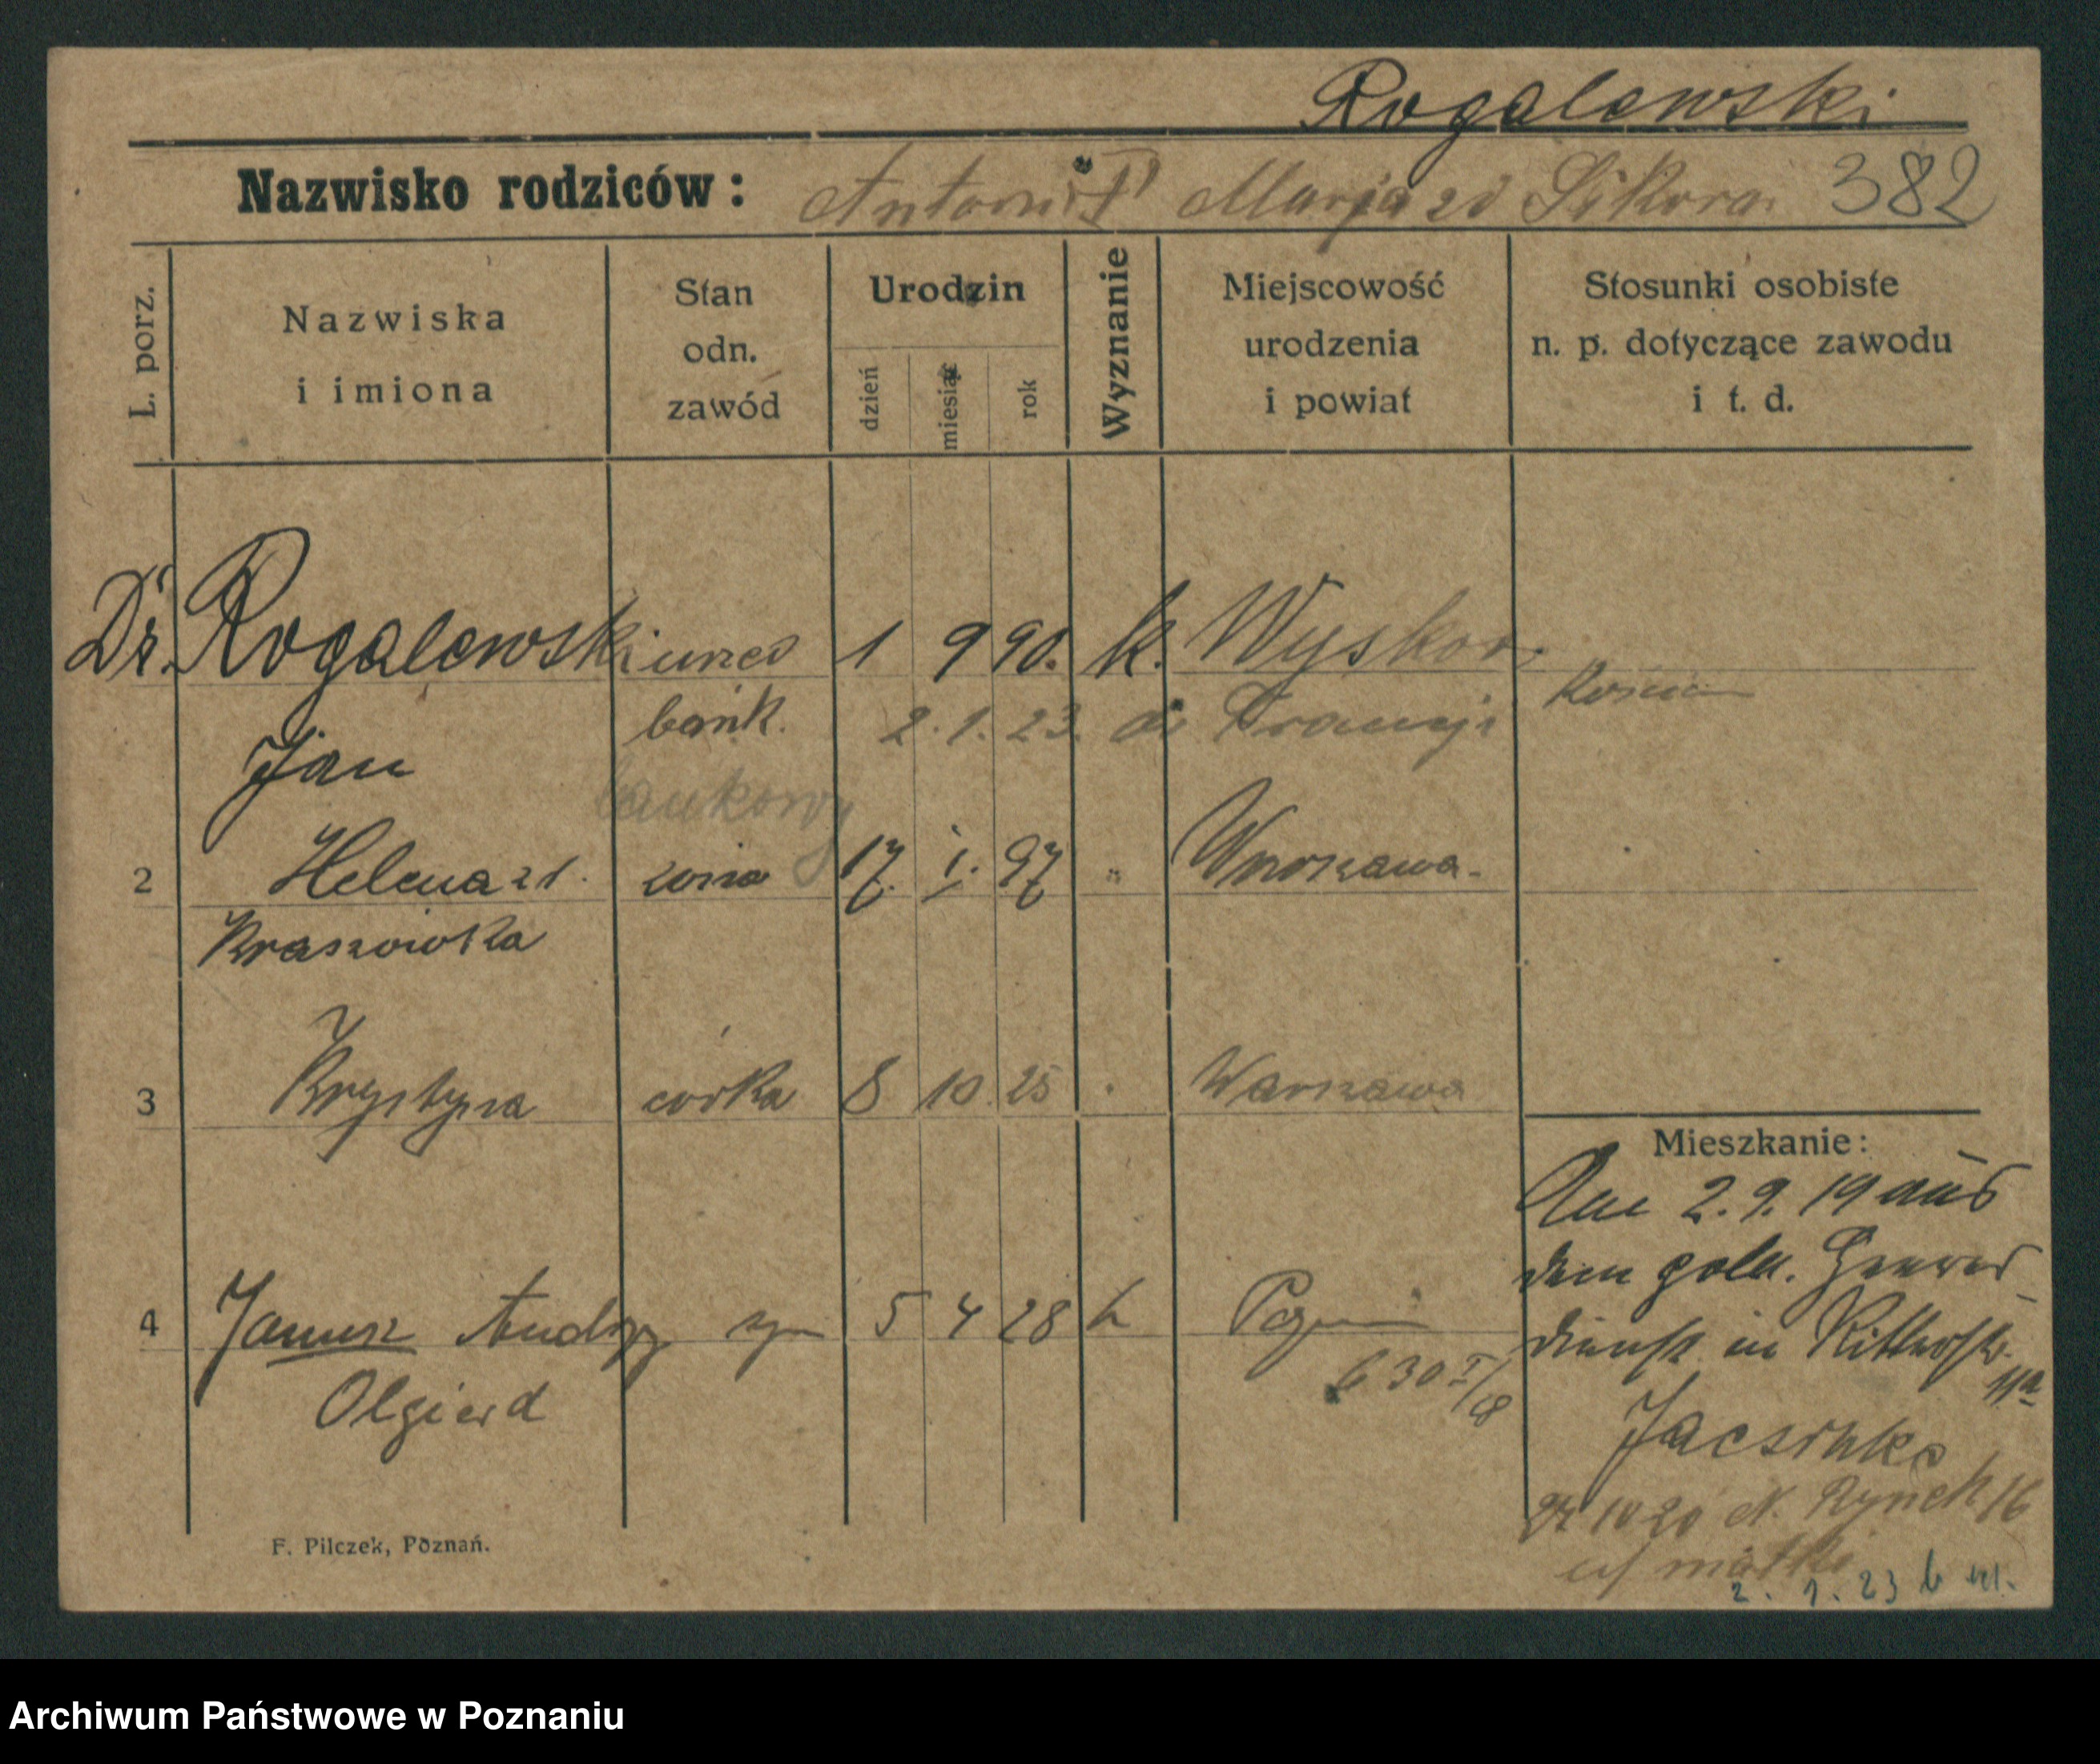 Rogalewski
Nazwisko rodziców: Antoni Marja zd Sikora. 382
L. porz.
Nazwiska
i imiona
Stan
odn.
zawód
Urodzin
dzień
miesiąc
rok
Wyznanie
Miejscowość
urodzenia
i powiat
Stosunki osobiste
n. p. dotyczące zawodu
i t. d.
Dr. Rogalewski 1 9 90. k. Wyskoć
bank. 2.1.23. do Francji
Jan
bankowy
2 Helena zd. żona 17. 1. 97 " Warszawa.
3 Krystyna córka 8 10 25 Warszawa
4 Janusz Andrzej syn 5 4 28 k
Olgierd
630
Mieszkanie:
Am 2.9.19 aus
dem poln.
dienst in
N. Rynek 16
u/ matki
2. 1. 23
F. Pilczek, Poznań.
Archiwum Państwowe w Poznaniu